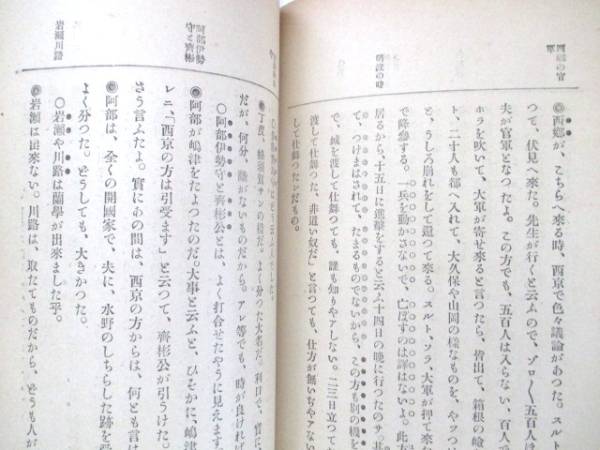 西郷が、こちらへ來る時、西京で色々議論があつた。スルト
つて、伏見へ來た。先生が行くと云ふので、ゾロ〱五百人は
夫が官軍となつたよ。この方でも、五百人は入らない、百人で
ホラを吹いて、大軍が寄せ來ると言つたら、皆出て、箱根の嶮
ト、二十人も都へ入れて、大久保や山岡の樣なものを、やッつ
と、うしろ崩れをして還つて來る。スルト、ソラ、大軍が押て來
で降參する。一兵も動かさないで、亡ぼすのは譯はないよ。此方
居るから、十五日に進撃をすると云ふ十四日の晩に行つたのサ。
つて、つけまはされて、たまるものでないから、この方も別の機を
で、城を渡して仕舞つても、誰も知りやアしない。二三日立つて
渡して仕舞つた、非道い奴だ」と言つても、仕方が無いぢやアない
して仕舞つたんだもの。
阿部伊勢
守と齊彬
岩瀬川路
だが、何分、
がないものだから。アレ等でも、時が良ければ
○阿部伊勢守と齊彬公とは、よく打合せたやうに見えます
阿部が嶋津をたよつたのだ。大事と云ふと、ひそかに、嶋津
レニ、「西京の方は引受ます」と云つて、齊彬公が引うけた。
さう言ふたよ。實にあの間は、西京の方からは、何とも言
阿部は、全くの開國家で、夫に、水野のしちらした跡を
よく分つた。どうしても、大きかつた。
○岩瀬や川路は蘭學が出來ました乎。
岩瀬は出來ない。川路は、取たてものだから、どうも人が